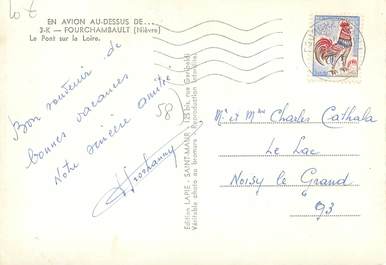 EN AVION AU-DESSUS DE...
3-K — FOURCHAMBAULT (Nièvre)
Le Pont sur la Loire.
Bon souvenir de
bonnes vacances
Notre sincère amitié
58
Edition LAPIE - SAINT-MAUR - 125 bis, rue Garibaldi
Véritable photo au bromure - Reproduction interdite
Mr et Mme Charles Cathala
Le Lac
Noisy le Grand
93